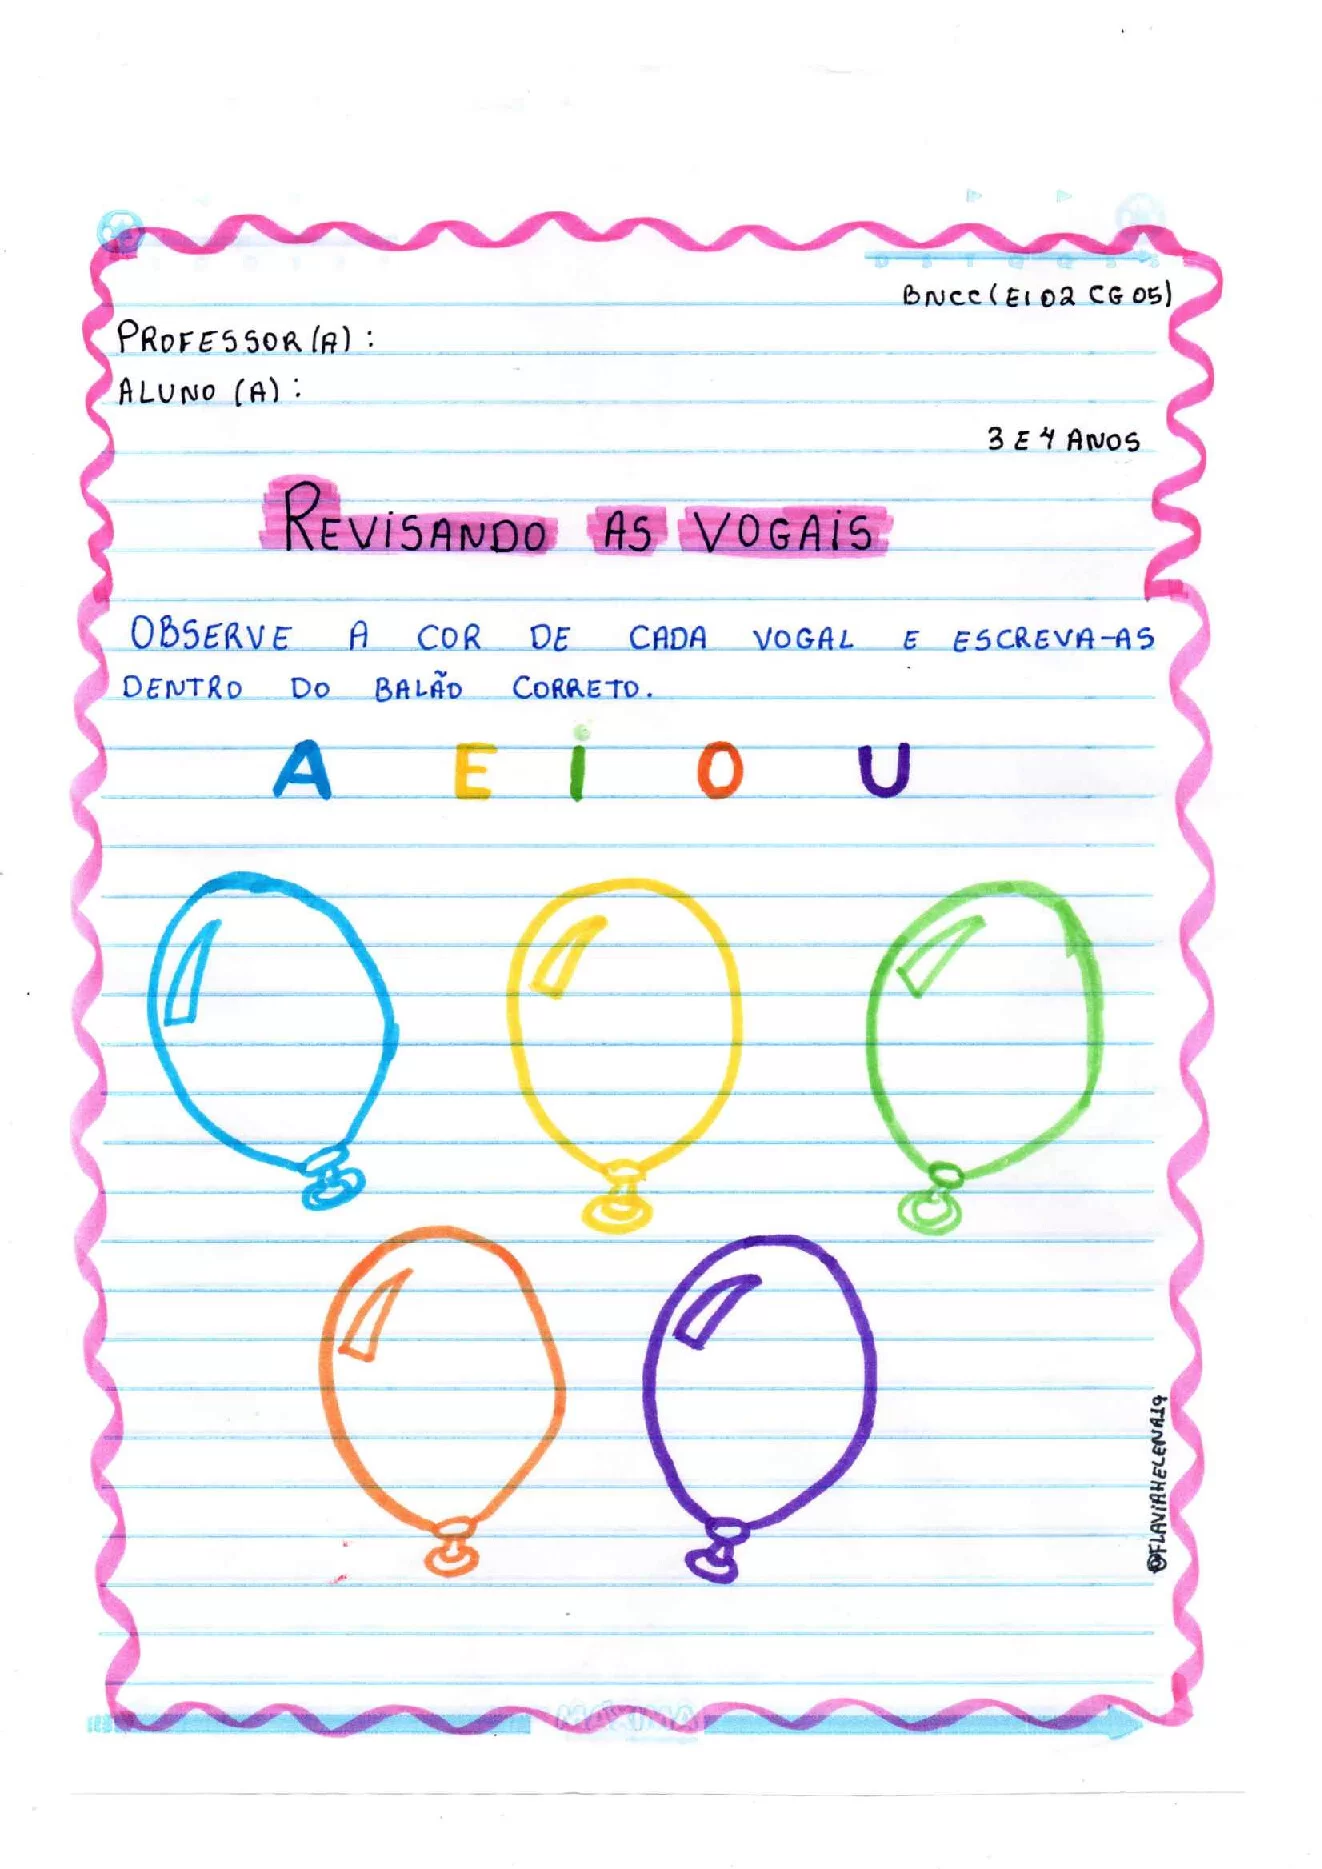 BNCC(EI02 CG05)
PROFESSOR(A):
ALUNO (A):
3 E 4 ANOS
REVISANDO AS VOGAIS
OBSERVE A COR DE CADA VOGAL E ESCREVA-AS
DENTRO DO BALÃO CORRETO.
A E I O U
@FLAVIAHELENA19
MÁXIMA